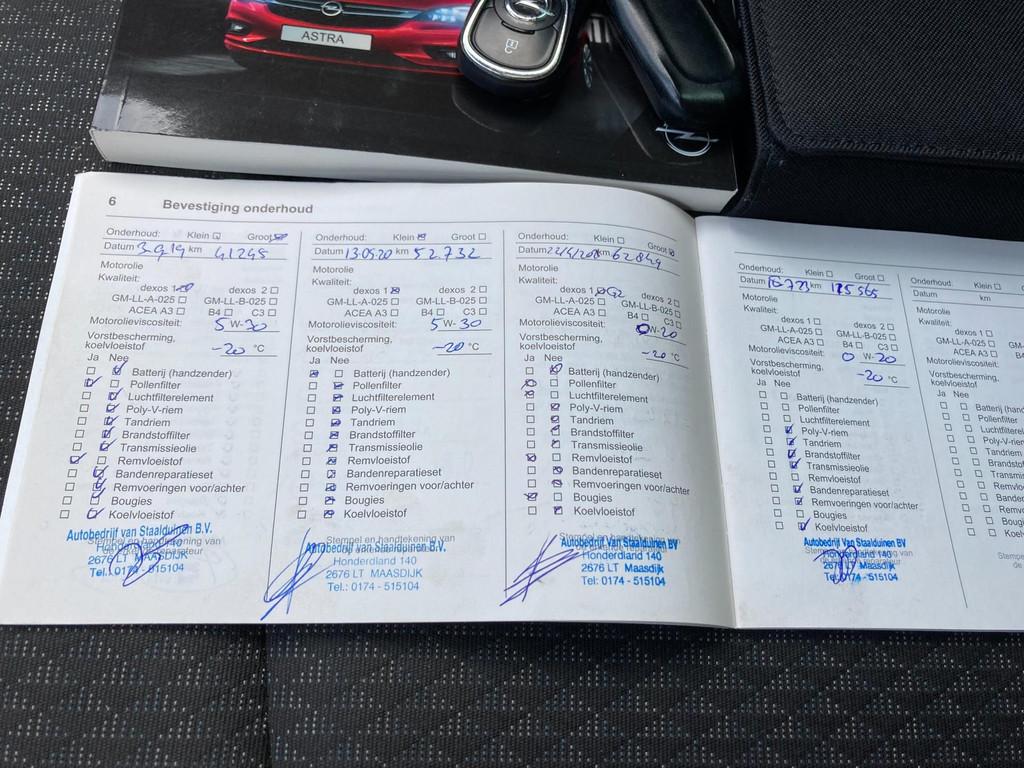 ASTRA
6 Bevestiging onderhoud
Onderhoud: Klein Groot
Datum 3-9-19 km 41245
Motorolie
Kwaliteit:
dexos 1 dexos 2
GM-LL-A-025 GM-LL-B-025
ACEA A3 B4 C3
Motorolieviscositeit: 5 W-30
Vorstbescherming,
koelvloeistof -20 °C
Ja Nee
Batterij (handzender)
Pollenfilter
Luchtfilterelement
Poly-V-riem
Tandriem
Brandstoffilter
Transmissieolie
Remvloeistof
Bandenreparatieset
Remvoeringen voor/achter
Bougies
Koelvloeistof
Autobedrijf van Staalduinen B.V.
Stempel en handtekening van
2676 LT MAASDIJK
Tel.: 0174 - 515104
Onderhoud: Klein Groot
Datum 13-05-20 km 52.732
Motorolie
Kwaliteit:
dexos 1 dexos 2
GM-LL-A-025 GM-LL-B-025
ACEA A3 B4 C3
Motorolieviscositeit: 5 W-30
Vorstbescherming,
koelvloeistof -20 °C
Ja Nee
Batterij (handzender)
Pollenfilter
Luchtfilterelement
Poly-V-riem
Tandriem
Brandstoffilter
Transmissieolie
Remvloeistof
Bandenreparatieset
Remvoeringen voor/achter
Bougies
Koelvloeistof
Stempel en handtekening van
Autobedrijf van Staalduinen B.V.
Honderdland 140
2676 LT MAASDIJK
Tel.: 0174 - 515104
Onderhoud: Klein Groot
Datum km 62849
Motorolie
Kwaliteit:
dexos 1 G2 dexos 2
GM-LL-A-025 GM-LL-B-025
ACEA A3 B4 C3
Motorolieviscositeit: 0W-20
Vorstbescherming,
koelvloeistof -20 °C
Ja Nee
Batterij (handzender)
Pollenfilter
Luchtfilterelement
Poly-V-riem
Tandriem
Brandstoffilter
Transmissieolie
Remvloeistof
Bandenreparatieset
Remvoeringen voor/achter
Bougies
Koelvloeistof
Stempel en handtekening van
Autobedrijf Van Staalduinen BV
Honderdland 140
2676 LT Maasdijk
Tel: 0174 - 515104
Onderhoud: Klein Groot
Datum km
Motorolie
Kwaliteit:
dexos 1 dexos 2
GM-LL-A-025 GM-LL-B-025
ACEA A3 B4 C3
Motorolieviscositeit: 0 W-20
Vorstbescherming,
koelvloeistof -20 °C
Ja Nee
Batterij (handzender)
Pollenfilter
Luchtfilterelement
Poly-V-riem
Tandriem
Brandstoffilter
Transmissieolie
Remvloeistof
Bandenreparatieset
Remvoeringen voor/achter
Bougies
Koelvloeistof
Autobedrijf Van Staalduinen BV
Honderdland 140
2676 LT Maasdijk
Tel: 0174 - 515104
Onderhoud: Klein
Datum km
Motorolie
Kwaliteit:
dexos 1
GM-LL-A-025
ACEA A3
Motorolieviscositeit:
Vorstbescherming,
koelvloeistof
Ja Nee
Batterij (hand
Pollenfilter
Luchtfilterele
Poly-V-riem
Tandriem
Brandsto
Transmis
Remvlo
Banden
Remvo
Bougi
Koelv